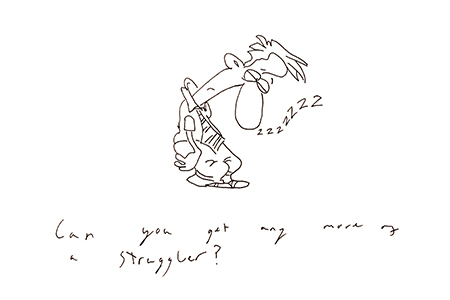 zzzzzzz
Can you get any more of
a struggler?